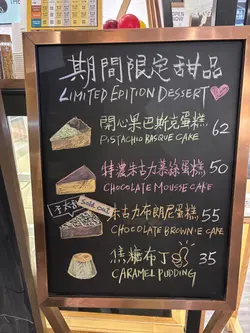 期間限定甜品
LIMITED EDITION DESSERT
開心果巴斯克蛋糕 62
PISTACHIO BASQUE CAKE
特濃朱古力慕絲蛋糕 50
CHOCOLATE MOUSSE CAKE
Sold out
朱古力布朗尼蛋糕 55
CHOCOLATE BROWNIE CAKE
焦糖布丁 35
CARAMEL PUDDING